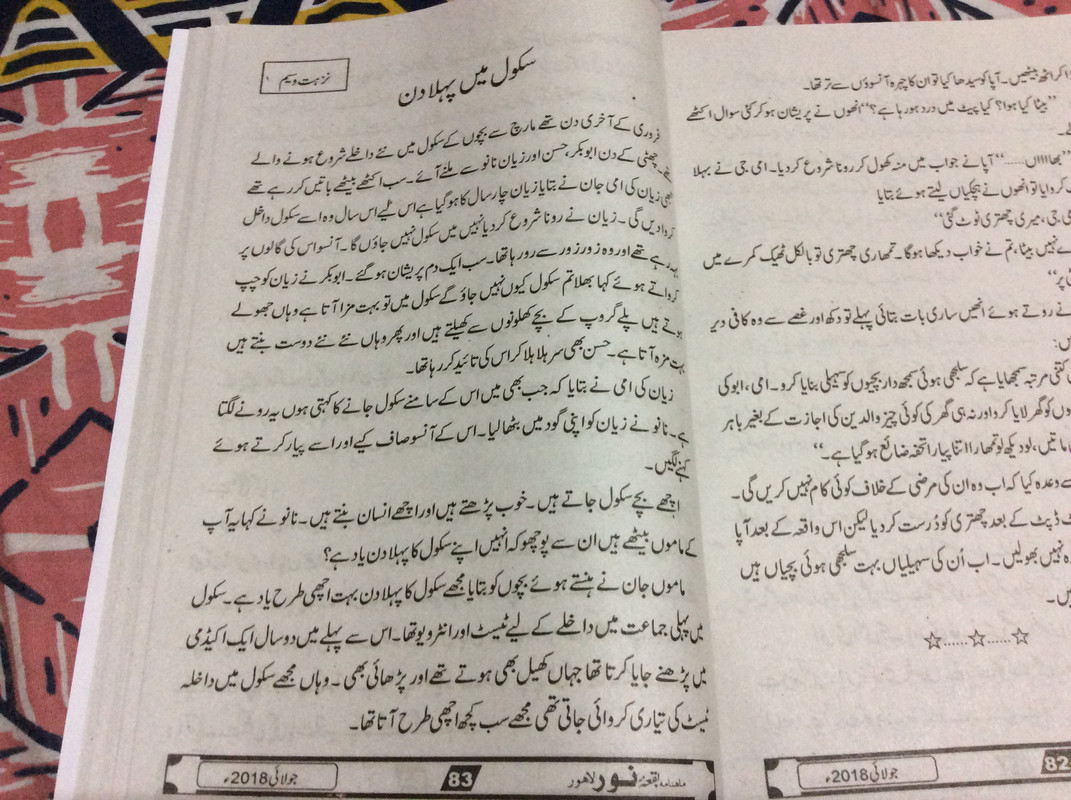 کر اٹھ بیٹھیں۔ آپا کو سیدھا کیا تو ان کا چہرہ آنسوؤں سے تر تھا۔
”بیٹا کیا ہوا؟ کیا پیٹ میں درد ہو رہا ہے؟“ انھوں نے پریشان ہو کر کئی سوال اکٹھے
”بھااااں.......“ آپا نے جواب میں منہ کھول کر رونا شروع کر دیا۔ امی جی نے بہلا
کروایا تو انھوں نے ہچکیاں لیتے ہوئے بتایا
جی، میری چھتری ٹوٹ گئی“
نہیں بیٹا، تم نے خواب دیکھا ہوگا۔ تمھاری چھتری تو بالکل ٹھیک کمرے میں
پر“
نے روتے ہوئے انھیں ساری بات بتائی پہلے تو دکھ اور غصے سے وہ کافی دیر
کتنی مرتبہ سمجھایا ہے کہ سلجھی ہوئی سمجھ دار بچیوں کو سہیلی بنایا کرو۔ امی، ابو کی
کو گھر لایا کرو اور نہ ہی گھر کی کوئی چیز والدین کی اجازت کے بغیر باہر
ماتیں، لو دیکھ لو تمھارا اتنا پیارا تحفہ ضائع ہو گیا ہے۔“
سے وعدہ کیا کہ اب وہ ان کی مرضی کے خلاف کوئی کام نہیں کریں گی۔
ڈپٹ کے بعد چھتری کو دُرست کر دیا لیکن اس واقعہ کے بعد آپا
نہیں بھولیں۔ اب اُن کی سہیلیاں بہت سلجھی ہوئی بچیاں ہیں
☆......☆......☆
82
جولائی 2018ء
سکول میں پہلا دن
نزہت وسیم
فروری کے آخری دن تھے مارچ سے بچوں کے سکول میں نئے داخلے شروع ہونے والے
تھے۔ چھٹی کے دن ابوبکر، حسن اور زیان نانو سے ملنے آئے۔ سب اکٹھے بیٹھے باتیں کر رہے تھے
تبھی زیان کی امی جان نے بتایا زیان چار سال کا ہو گیا ہے اس لیے اس سال وہ اسے سکول داخل
کروا دیں گی۔ زیان نے رونا شروع کر دیا نہیں میں سکول نہیں جاؤں گا۔ آنسو اس کی گالوں پر
بہہ رہے تھے اور وہ زور زور سے رو رہا تھا۔ سب ایک دم پریشان ہو گئے۔ ابوبکر نے زیان کو چپ
کرواتے ہوئے کہا بھلا تم سکول کیوں نہیں جاؤ گے سکول میں تو بہت مزا آتا ہے وہاں جھولے
ہوتے ہیں پلے گروپ کے بچے کھلونوں سے کھیلتے ہیں اور پھر وہاں نئے نئے دوست بنتے ہیں
بہت مزہ آتا ہے۔ حسن بھی سر ہلا ہلا کر اس کی تائید کر رہا تھا۔
زیان کی امی نے بتایا کہ جب بھی میں اس کے سامنے سکول جانے کا کہتی ہوں یہ رونے لگتا
ہے۔ نانو نے زیان کو اپنی گود میں بٹھا لیا۔ اس کے آنسو صاف کیے اور اسے پیار کرتے ہوئے
کہنے لگیں۔
اچھے بچے سکول جاتے ہیں۔ خوب پڑھتے ہیں اور اچھے انسان بنتے ہیں۔ نانو نے کہا یہ آپ
کے ماموں بیٹھے ہیں ان سے پوچھو کہ انہیں اپنے سکول کا پہلا دن یاد ہے؟
ماموں جان نے ہنستے ہوئے بچوں کو بتایا مجھے سکول کا پہلا دن بہت اچھی طرح یاد ہے۔ سکول
میں پہلی جماعت میں داخلے کے لیے ٹیسٹ اور انٹرویو تھا۔ اس سے پہلے میں دو سال ایک اکیڈمی
میں پڑھنے جایا کرتا تھا جہاں کھیل بھی ہوتے تھے اور پڑھائی بھی۔ وہاں مجھے سکول میں داخلہ
ٹیسٹ کی تیاری کروائی جاتی تھی مجھے سب کچھ اچھی طرح آتا تھا۔
ماہنامہ بقعۂ نور لاہور
83
جولائی 2018ء